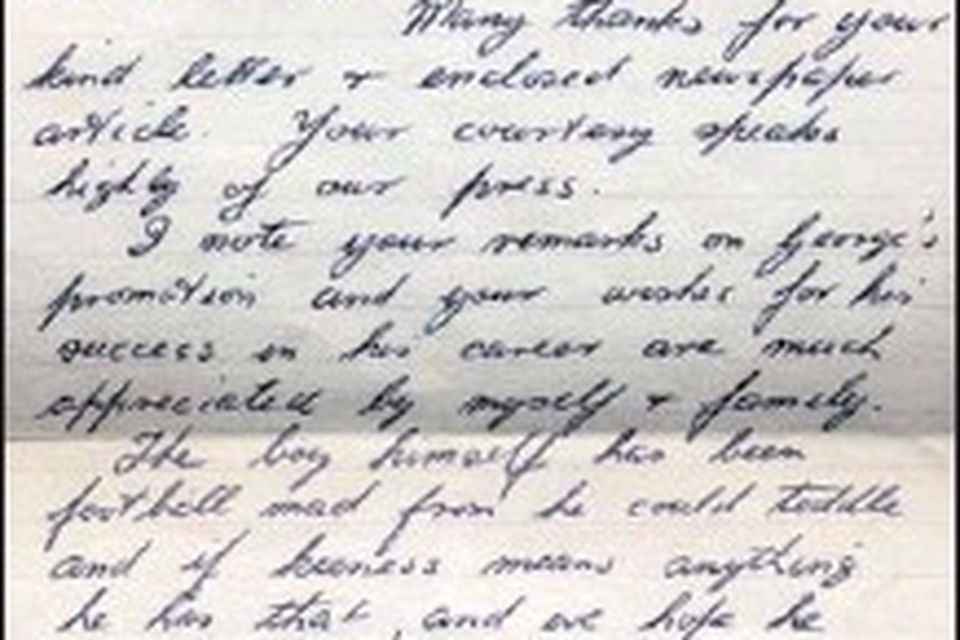 Many thanks for your
kind letter + enclosed newspaper
article. Your courtesy speaks
highly of our press.
I note your remarks on George's
promotion and your wishes for his
success in his career are much
appreciated by myself + family.
The boy himself has been
football mad from he could toddle
and if keeness means anything
he has that, and we hope he